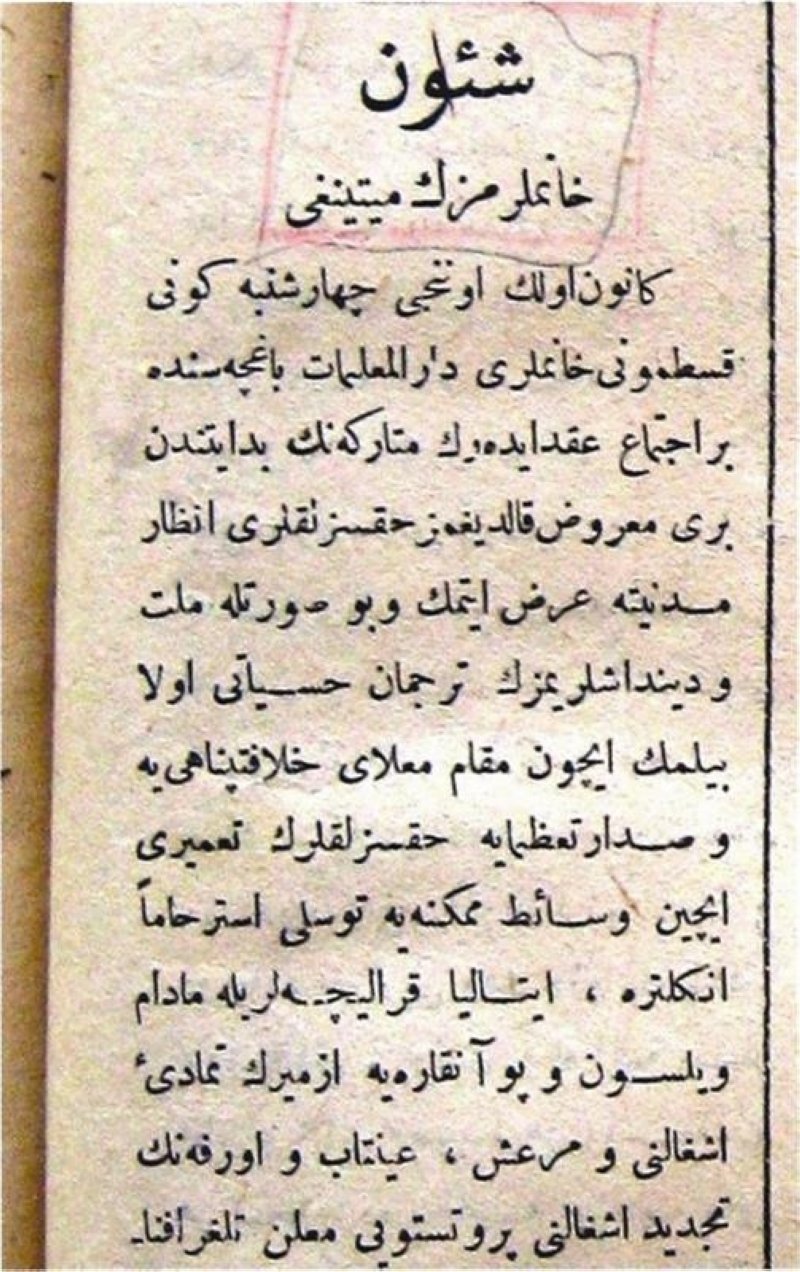 شئون
خانملرمزك ميتينغى
كانون اولك اوننجى چهارشنبه كونى
قسطمونى خانملرى دارالمعلمات باغچه‌سنده
بر اجتماع عقد ايده‌رك متاركه‌نك بدايتندن
برى معروض قالديغمز حقسزلقلرى انظار
مدنيته عرض ايتمك وبو صورتله ملت
و دينداشلريمزك ترجمان حسياتى اولا
بيلمك ايچون مقام معلاى خلافتپناهى‌يه
و صدارتعظمايه حقسزلقلرك تعميرى
ايچين وسائط ممكنه‌يه توسلى استرحاماً
انكلتره ، ايتاليا قراليچه‌لريله مادام
ويلسون و پوآنقاره‌يه ازميرك تمادىٔ
اشغالنى و مرعش ، عينتاب و اورفه‌نك
تجديد اشغالنى پروتستويى معلن تلغرافنا-